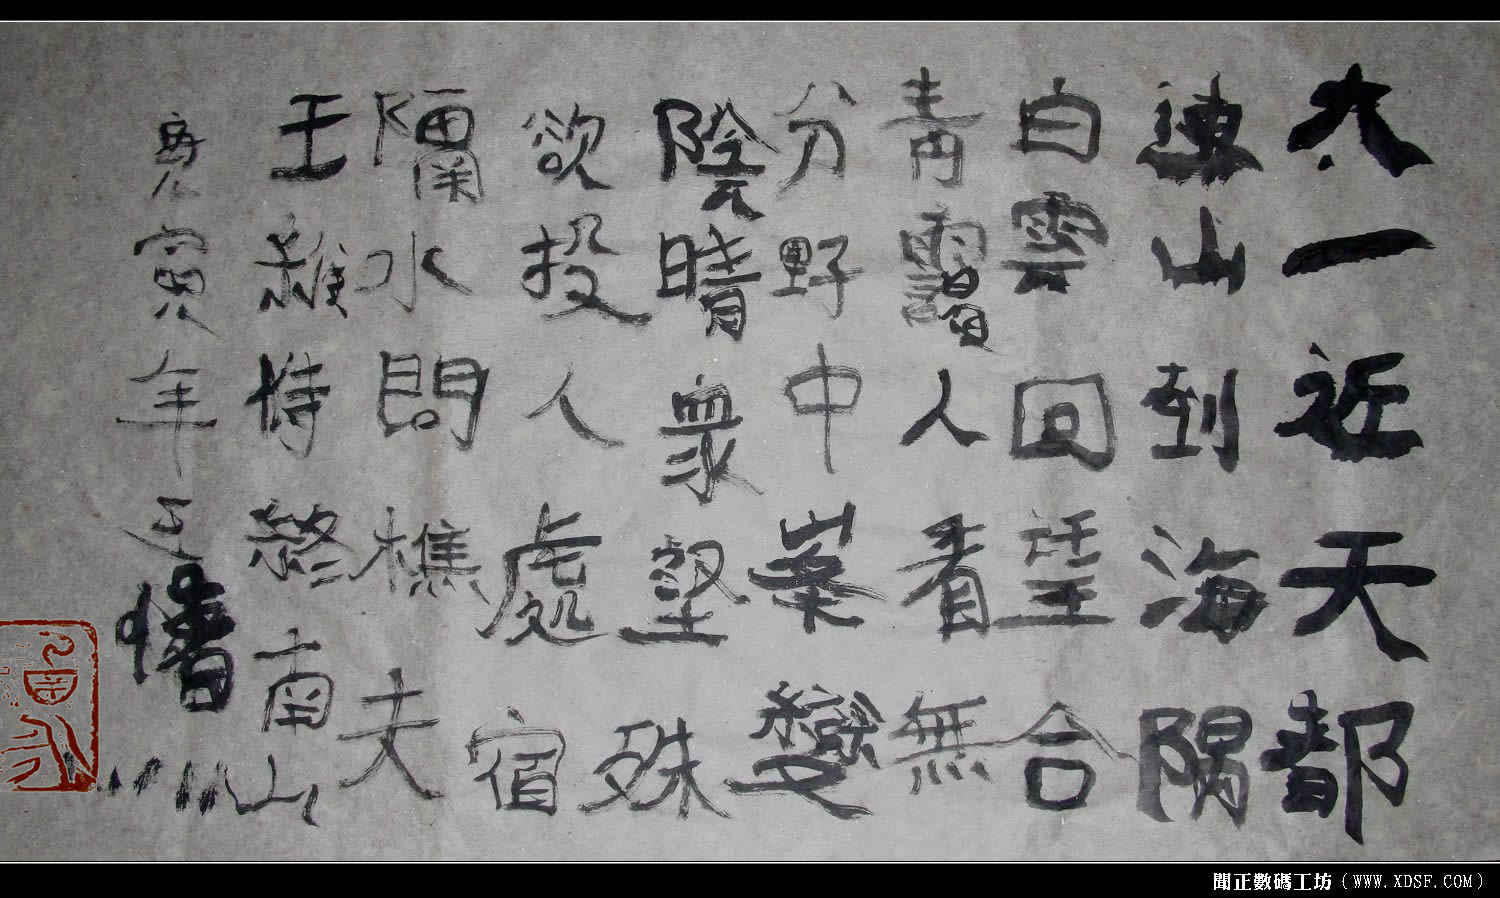 太一近天都
連山到海隅
白雲回望合
青靄人看無
分野中峯變
陰晴衆壑殊
欲投人處宿
隔水問樵夫
王維詩終南山
庚寅年
聞正數碼工坊（WWW.XDSF.COM）